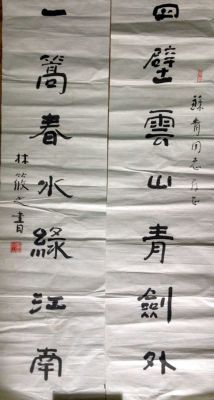 蘇青同志
四壁雲山青劍外
一篙春水綠江南
林筱之書